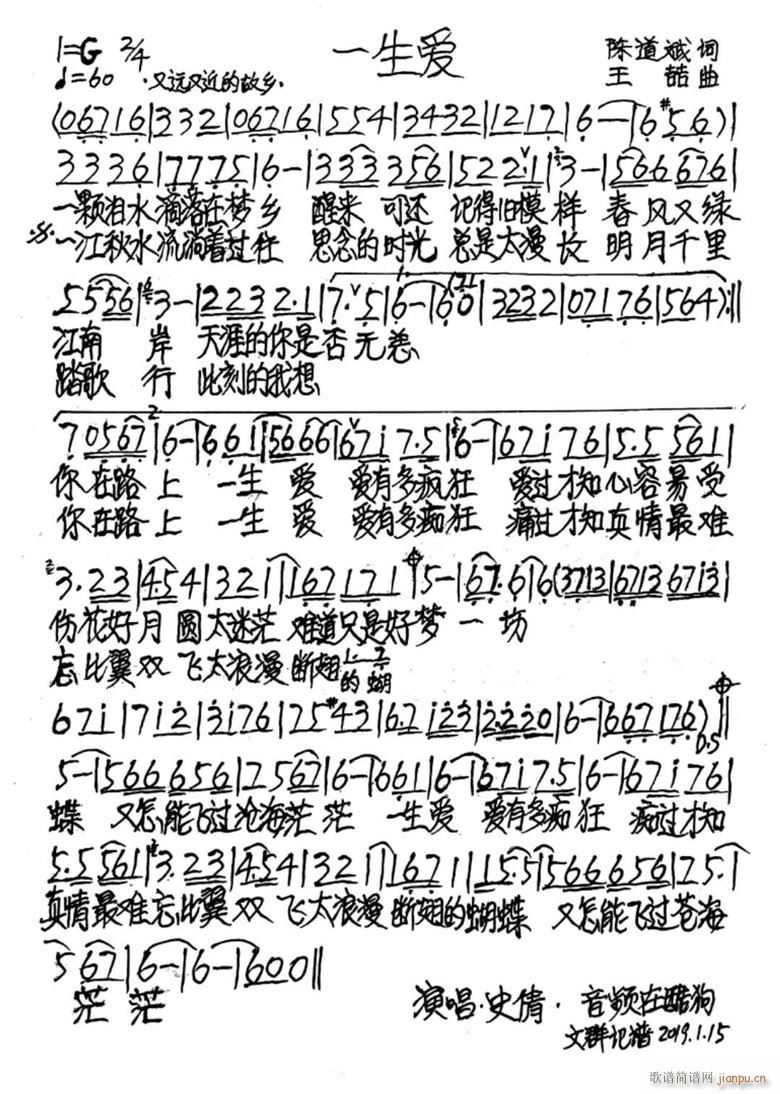 1=G 2/4 一生爱 陈道斌 词
♩=60 ·又远又近的故乡· 王 喆 曲
(06716|332|06716|554|3432|1217|6-|6#56)||
3336|7775|6-|333356|522·1|3-|566676|
一颗泪水滴落在梦乡 醒来 可还 记得旧模样 春风又绿
一江秋水流淌着过往 思念的时光 总是太漫长 明月千里
5556|3-|22322·1|7·5|6-|60|3232|07176|564):||
江南 岸 天涯的你是否无恙
踏歌 行 此刻的我想
70567|6-|661|5666|6717·5|6-|67176|5·5561|
你在路上 一生 爱 爱有多疯狂 爱过才知心容易受
你在路上 一生 爱 爱有多痴狂 痛过才知真情最难
3·23|4·54|321|167171|5-|67·6|6(3713|67136713|
伤花好月圆太迷茫 难道只是好梦一场
忘比翼双飞太浪漫断翅
的蝴
671|712|3176|75#43|6·7123|2·220|6-|667176)||
0·5
5-|5666656|7567|6-|661|6-|6717·5|6-|67176|
蝶 又怎能飞过沧海茫茫 一生爱 爱有多痴狂 痴过才知
5·5561|3·23|4·54|321|1671|115·5|5666656|75·|
真情最难忘比翼双飞太浪漫断翅的蝴蝶 又怎能飞过苍海
567|6-|6-|600||
茫茫 演唱·史倩· 音频在酷狗
文群记谱 2019.1.15
歌谱简谱网 jianpu.cn